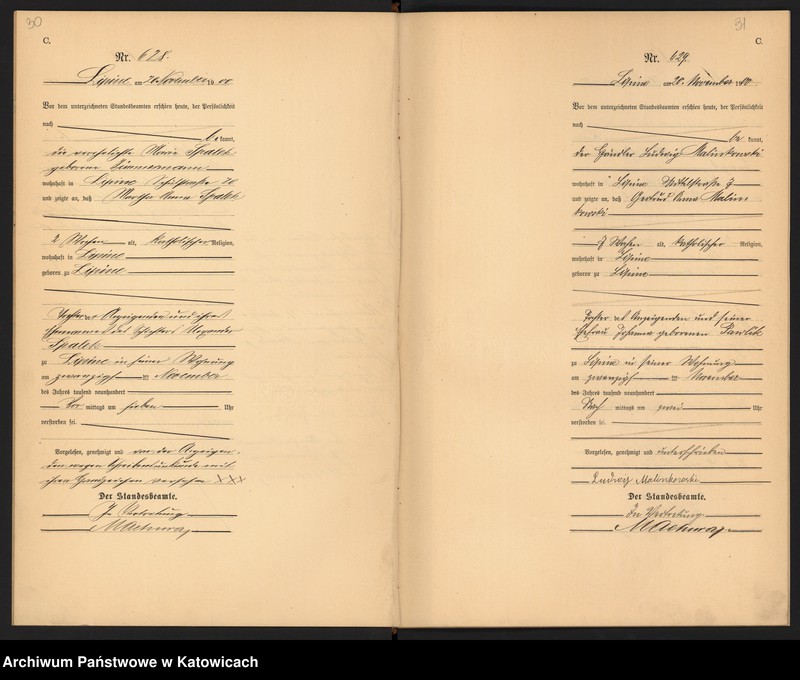 30
C.
Nr. 628.
Lipine am 20. November 1900
Vor dem unterzeichneten Standesbeamten erschien heute, der Persönlichkeit
nach
bekannt,
die verehelichte Marie Spalek
geborene Zimmermann
wohnhaft in Lipine Schulstraße
und zeigte an, daß Martha Anna Spalek
2 Wochen alt, katholischer Religion,
wohnhaft in Lipine
geboren zu Lipine
Tochter der Anzeigenden und ihres
Ehemannes des Alexander
Spalek
zu Lipine in seiner Wohnung
am zwanzigsten November
des Jahres tausend neunhundert
Vor mittags um sieben Uhr
verstorben sei.
Vorgelesen, genehmigt und von der Anzeigen-
den wegen Schreibensunkunde mit
ihrem Handzeichen versehen XXX
Der Standesbeamte.
In Vertretung
31
C.
Nr. 629
Lipine am 20. November 1900
Vor dem unterzeichneten Standesbeamten erschien heute, der Persönlichkeit
nach
bekannt,
der Ludwig Malinkowski
wohnhaft in Lipine Mittelstraße 7
und zeigte an, daß Gertrud Anna Malin
kowski
7 Wochen alt, katholischer Religion,
wohnhaft in Lipine
geboren zu Lipine
Tochter des Anzeigenden und seiner
Ehefrau Johanna geborenen Pawlik
zu Lipine in seiner Wohnung
am zwanzigsten November
des Jahres tausend neunhundert
Nach mittags um zwei Uhr
verstorben sei.
Vorgelesen, genehmigt und unterschrieben
Ludwig Malinkowski
Der Standesbeamte.
In Vertretung
Archiwum Państwowe w Katowicach